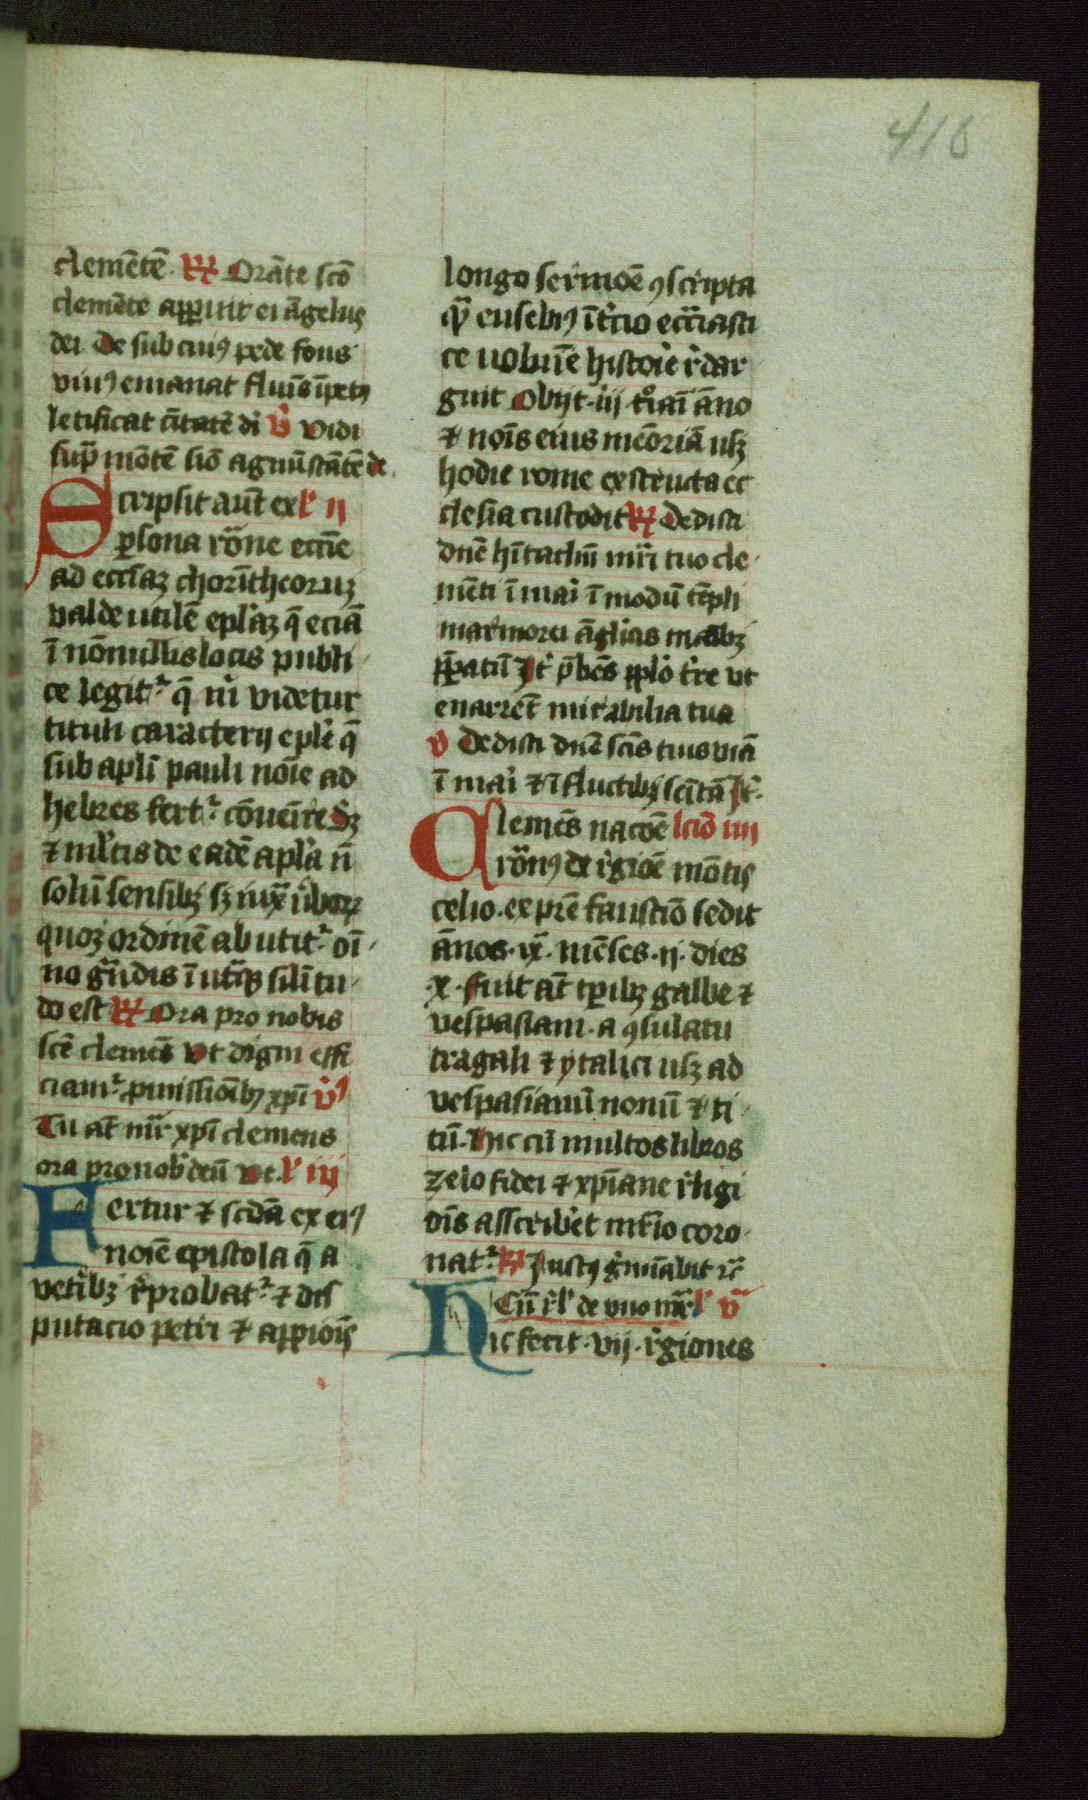 418
clemētē. R Orāte scō
clemēte apparuit ei āgelus
dei De sub cuiꝰ pede fons
viuꝰ emanat fluīs īpetꝰ
letificat ciītatē dī V̓ Vidi
sup̄ mōtē siō agnū stātē de
Scripsit aūt ex lʼ ij
ꝑsona rōne eccīe
ad eccīaꝫ chorītheoruꝫ
valde utilē eplāꝫ q̄ eciā
ī nōnullis locis publi
ce legit᷑ q̄ m̄ videtur
tituli caracterij eplē q̄
sub aplī pauli noīe ad
hebres fert᷑ cōueīre Sꝫ
⁊ mltīs de eadē aplʼa nō
solū sensibꝫ sꝫ iux̄ ūboꝝ
quoꝫ ordinē abutit᷑ oī
no grādis ī utraqꝫ silītu
do est R Ora pro nobis
scē clemēs Vt digni effi
ciam᷑ ꝓmissiōibꝫ xp̄i V̓
Tu aūt mr̄ xp̄i clemens
ora pro nobʼ deū Vt. lʼ iij
Fertur ⁊ scdā ex eiꝰ
noīe epistola q̄ a
vetibꝫ rʼprobat᷑ ⁊ dis
putacio petri ⁊ appiōis
longo sermōe ꝯscripta
qā eusebiꝰ ī t̓cio ecc̄iasti
ce uolumīe historīe rʼdar
guit Obijt iij trʼaī āno
⁊ noīs eius memōriā usꝫ
hodie rome exstructa ec
clesia custodit R Dedisti
dn̄e hītaclm̄ mr̄i tuo cle
mēti ī mari ī modū tēpli
marmorei āglicis manibꝫ
pꝑatū Jtʼ p̄bēs pplō tʼre vt
enarrēt mirabilia tua
V̓ Dedisti dn̄e scīs tuis viā
ī mari ⁊ ī fluctibꝫ semitā Jtʼ
Clemēs nacōe lcīo iiij
rōnꝰ de rʼgiōe mōtis
celio. ex prē faustīo sedit
ānos .ix. mēses .ij. dies
.x. fuit āt tꝑibꝫ galbe ⁊
vespasiani. a ꝯsulatu
tragali ⁊ ytalici usꝫ ad
vespasianū nonū ⁊ ti
tū. Hic cū multos libros
zelo fidei ⁊ xp̄iane rʼligi
ōis asscribʼet mrʼio coro
nat᷑ R Justꝰ gʼmīabit rc̄
Cū rʼlʼ de vno mr̄e lʼ v
Hic fecit .vij. rʼgiones